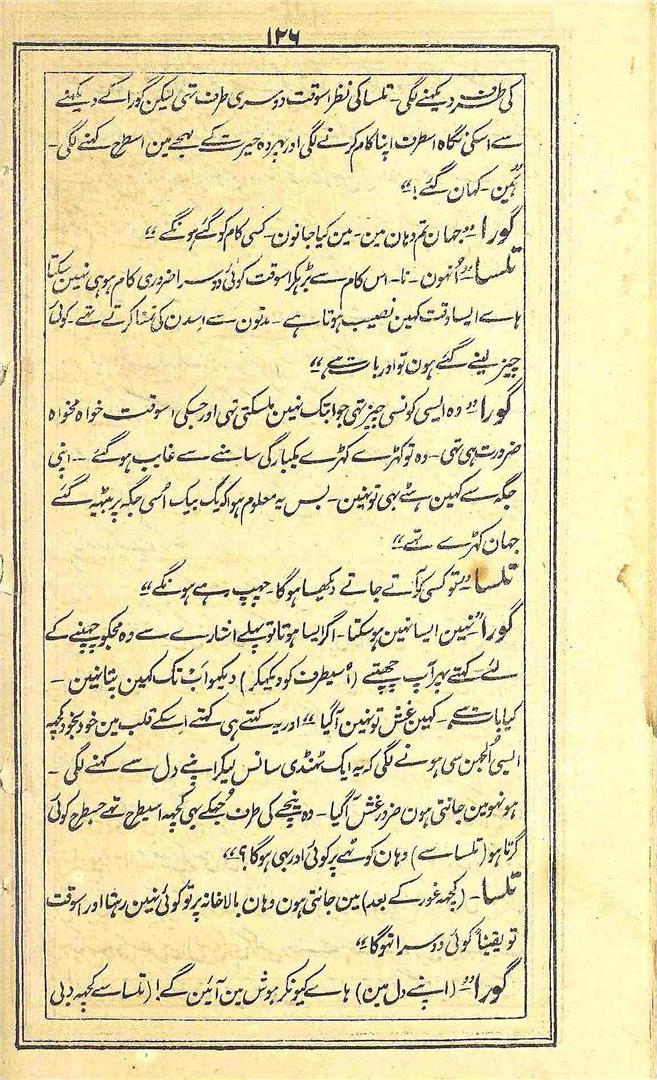 ۱۲۶
کی طرف دیکہنے لگی۔ تلسا کی نظر اسوقت دوسری طرف تہی لیکن گورا کے دیکہنے
سے اسکی نگاہ اسطرف اپنا کام کرنے لگی اور پہر وہ حیرت کے لہجے مین اسطرح کہنے لگی۔
ہَین۔ کہان گئے!“
گورا ”جہان تم وہان مین۔ مین کیا جانون۔ کسی کام کو گئے ہونگے“
تلسا ”اُنہون۔ نا۔ اس کام سے بڑہکر اسوقت کوئی دوسرا ضروری کام ہو ہی نہین سکتا
ہاے ایسا وقت کہین نصیب ہوتا ہے۔ مدتون سے اِسدن کی تمنا کرتے تہے۔ کوئی
چیز لینے گئے ہون تو اور بات ہے“
گورا ”وہ ایسی کونسی چیز تہی جو ابتک نہین ملسکتی تہی اور جسکی اسوقت خواہ مخواہ
ضرورت ہی تہی۔ وہ تو کہڑے کہڑے یکبارگی سامنے سے غایب ہو گئے۔ اپنی
جگہ سے کہین ہٹے بہی تو نہین۔ بس یہ معلوم ہوا کہ یک بیک اُسی جگہ پر بیٹہہ گئے
جہان کہڑے تہے“
تلسا ”تو کسی کو آتے جاتے دیکہا ہوگا۔ چہپ رہے ہونگے“
گورا ”نہین ایسا نہین ہو سکتا۔ اگر ایسا ہوتا تو پہلے اشارے سے وہ مجکو چہپنے کے
لئے کہتے پہر آپ چہپتے (اُسیطرف کو دیکہکر) دیکہو اَب تک کہین پتا نہین۔
کیا بات ہے۔ کہین غش تو نہین آگیا“ اور یہ کہتے ہی کہتے اِسکے قلب مین خود بخود کچہہ
ایسی اُلجہن سی ہونے لگی کہ یہ ایک ٹہنڈی سانس لیکر اپنے دل سے کہنے لگی۔
ہو نہو مین جانتی ہون ضرور غش آگیا۔ وہ نیچے کی طرف جُہکے بہی کچہہ اسیطرح تہے جسطرح کوئی
گرتا ہو (تلسا سے) وہان کوٹہے پر کوئی اور بہی ہوگا؟“
تلسا۔ (کچہہ غور کے بعد) مین جانتی ہون وہان بالاخانہ پر تو کوئی نہین رہتا اور اسوقت
تو یقیناً کوئی دوسرا نہوگا“
گورا ”(اپنے دل مین) ہاے کیونکر ہوش مین آئین گے! (تلسا سے کچہہ دبی